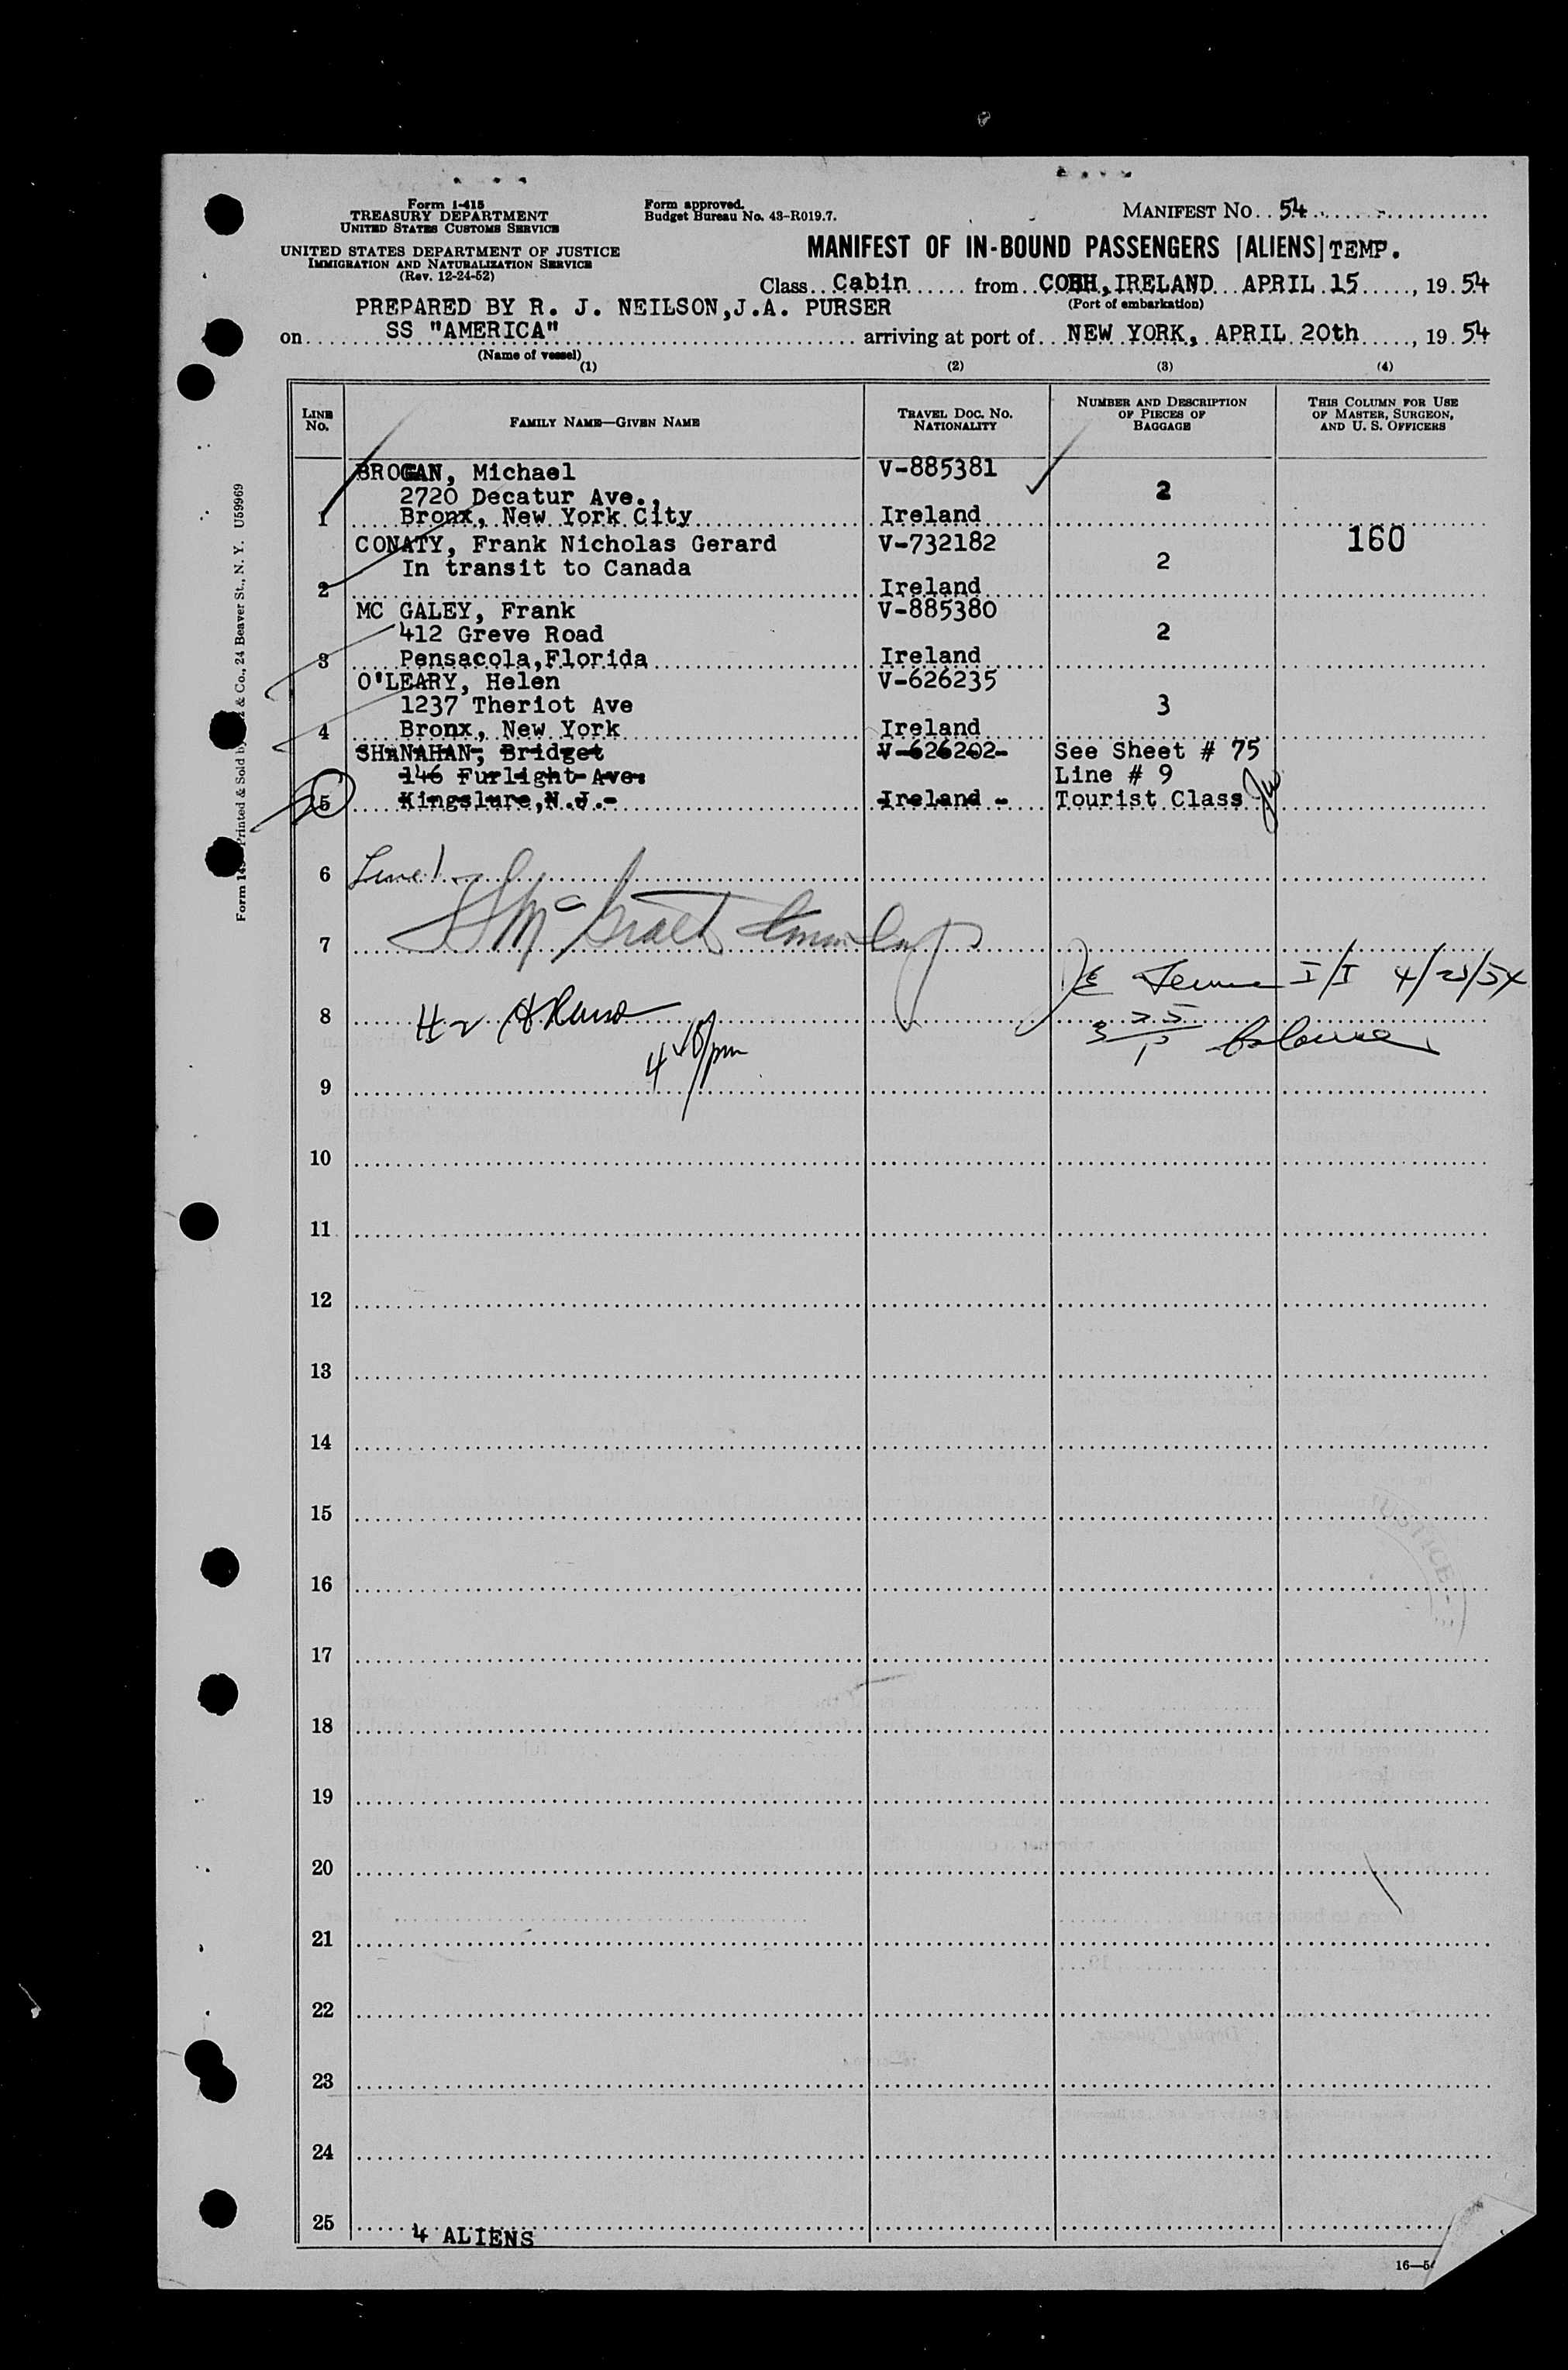 Form I-415
TREASURY DEPARTMENT
UNITED STATES CUSTOMS SERVICE
UNITED STATES DEPARTMENT OF JUSTICE
IMMIGRATION AND NATURALIZATION SERVICE
(Rev. 12-24-52)
Form approved.
Budget Bureau No. 43-R019.7.
MANIFEST NO. 54
MANIFEST OF IN-BOUND PASSENGERS [ALIENS] TEMP.
Class Cabin from COBH, IRELAND APRIL 15, 1954
(Port of embarkation)
PREPARED BY R. J. NEILSON, J.A. PURSER
on SS "AMERICA" arriving at port of NEW YORK, APRIL 20th, 1954
(Name of vessel)
(1) (2) (3) (4)
LINE NO.
FAMILY NAME—GIVEN NAME
TRAVEL DOC. NO. NATIONALITY
NUMBER AND DESCRIPTION OF PIECES OF BAGGAGE
THIS COLUMN FOR USE OF MASTER, SURGEON, AND U. S. OFFICERS
BROGAN, Michael V-885381
2720 Decatur Ave., 2
1 Bronx, New York City Ireland
CONATY, Frank Nicholas Gerard V-732182 160
In transit to Canada 2
2 Ireland
MC GALEY, Frank V-885380
412 Greve Road 2
3 Pensacola, Florida Ireland
O'LEARY, Helen V-626235
1237 Theriot Ave 3
4 Bronx, New York Ireland
SHANAHAN, Bridget V-626202- See Sheet # 75
146 Furlight Ave. Line # 9
5 Kingslure, N.J.- Ireland - Tourist Class
6 Line 1
7
8
9
10
11
12
13
14
15
16
17
18
19
20
21
22
23
24
25
4 ALIENS
16—54
Printed & Sold by & Co., 24 Beaver St., N. Y. U59969